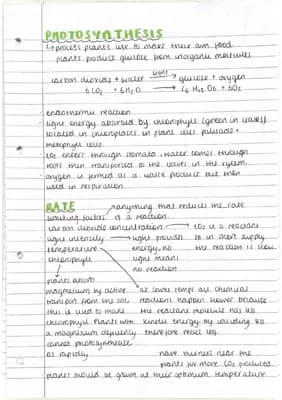 PHOTOSYNTHESIS
↳ process plants use to make their own food
plants produce glucose from inorganic molecules
light
carbon dioxide + water → glucose + oxygen
6CO2 + 6H2O → C6H12O6 + 6O2
endothermic reaction
light energy absorbed by chlorophyll (green in leaves)
located in chloroplasts in plant cells palisade +
mesophyll cells
CO2 enters through stomata, water comes through
roots then transported to the leaves in the xylem
oxygen is formed as a waste product but then
used in respiration
RATE
anything that reduces the rate
limiting factors of a reaction
carbon dioxide concentration → CO2 is a reactant
light intensity → light provides so in short supply
temperature energy, no the reaction is slow
chlorophyll light means
no reaction
plants absorb
magnesium by active at lower temps all chemical
transport from the soil reactions happen slower because
this is used to make the reactant molecule has less
chlorophyll plants with kinetic energy by colliding less
a magnesium deficiency therefore react less
cannot photosynthesise
as rapidly have burners near the
plants for more CO2 produced
plants should be grown at their optimum temperature